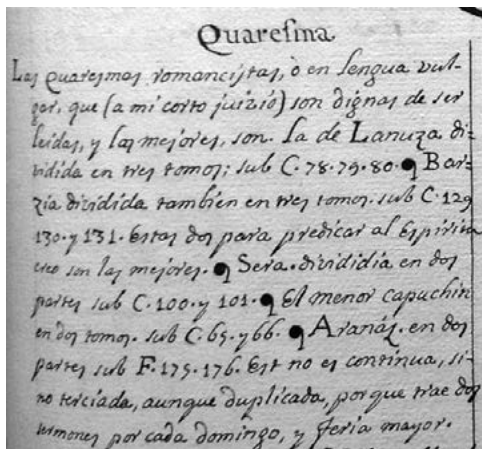 Quaresma
Las quaresmas romancistas, ò en lengua vul-
gar, que (a mi corto juizio) son dignas de ser
leidas, y las mejores, son. La de Lanuza di-
vidida en tres tomos; sub C. 78. 79. 80. ¶ Bar-
zia dividida tambien en tres tomos. sub C. 129
130. y 131. Estas dos para predicar al Espiritu
creo son las mejores. ¶ Sera. dividídia en dos
partes sub C. 100. y 101. ¶ El menor capuchin
en dos tomos. sub C. 65. y 66. ¶ Aranáz. en dos
partes sub F. 175. 176. Est no es continua, si-
no terciada, aunque duplicada, porque trae dos
sermones por cada domingo, y feria mayor.